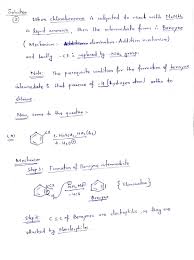 Solution
②
When chlorobenzene is subjected to react with NaNH₂
in liquid ammonia, then the intermediate forms is Benzyne
(Mechanism - Addition elimination-Addition mechanism)
and lastly -Cl is replaced by -NH₂ group.
Note: The prerequisite condition for the formation of benzyne
intermediate is that presence of -H (hydrogen atom) ortho to
Now, come to the question -
Cl
Mechanism
Step 1: Formation of Benzyne intermediate
Cl
H
-HCl
{Elimination}
(Benzyne)
Step 2: C≡C of Benzyne are electrophilic so they are
attacked by Nucleophiles